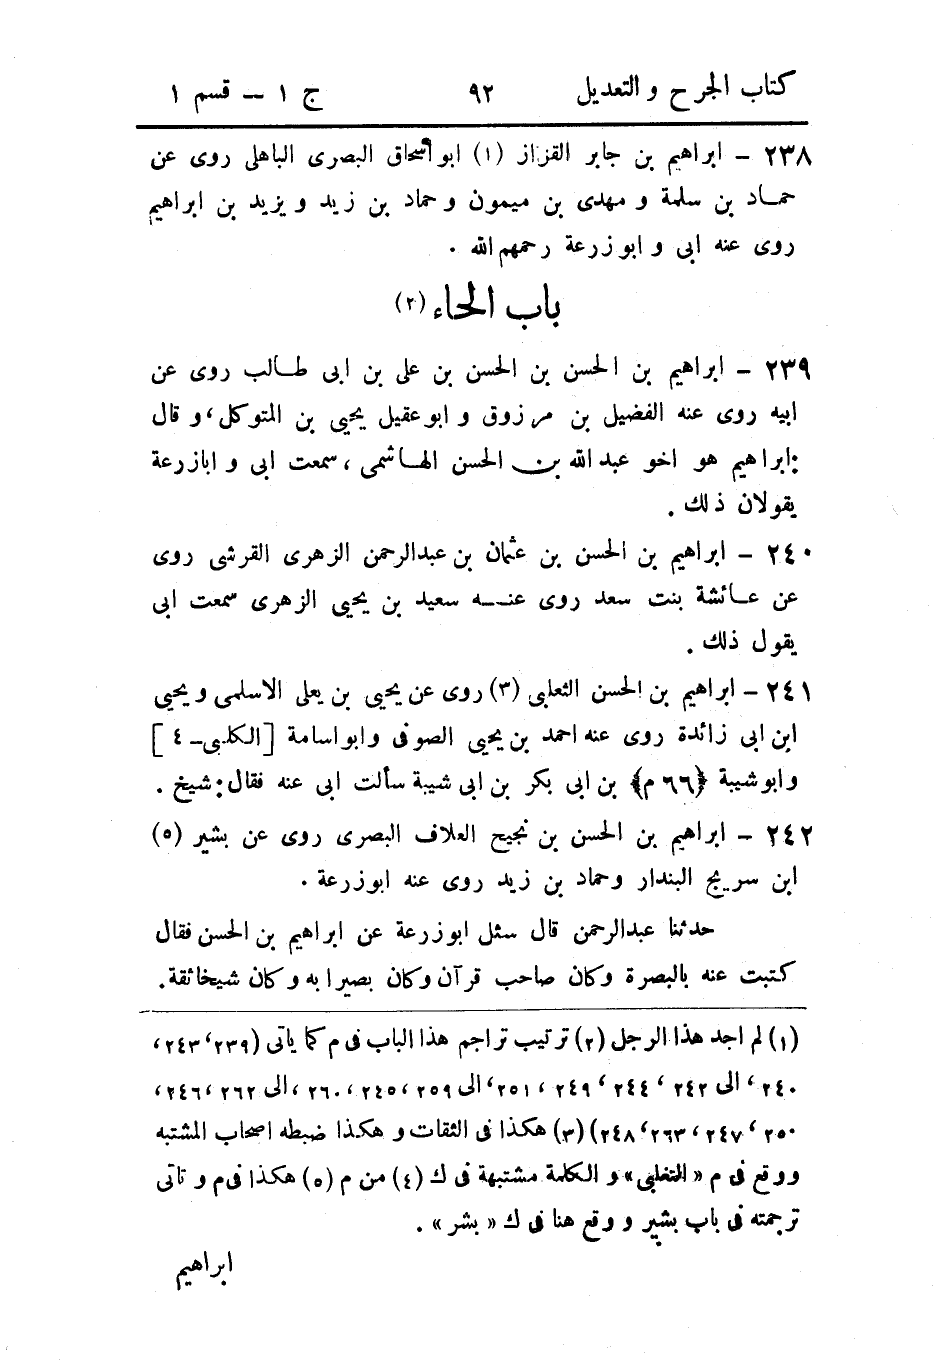 كتاب الجرح والتعديل ٩٢ ج ١ – قسم ١
٢٣٨ – ابراهيم بن جابر القزاز (١) ابو اسحاق البصرى الباهلى روى عن
حماد بن سلمة و مهدى بن ميمون وحماد بن زيد ويزيد بن ابراهيم
روى عنه ابى و ابوزرعة رحمهم الله .
باب الحاء (٢)
٢٣٩ – ابراهيم بن الحسن بن الحسن بن على بن ابى طالب روى عن
ابيه روى عنه الفضيل بن مرزوق و ابوعقيل يحيى بن المتوكل، و قال
:ابراهيم هو اخو عبد الله بن الحسن الهاشمى ، سمعت ابى و ابازرعة
يقولان ذلك .
٢٤٠ – ابراهيم بن الحسن بن عثمان بن عبدالرحمن الزهرى القرشى روى
عن عائشة بنت سعد روى عنه سعيد بن يحيى الزهرى سمعت ابى
يقول ذلك .
٢٤١ – ابراهيم بن الحسن الثعلبى (٣) روى عن يحيى بن يعلى الاسلمى ويحيى
ابن ابى زائدة روى عنه احمد بن يحيى الصوفى وابو اسامة [الكلبى-٤]
وابوشيبة {٦٦ م} بن ابى بكر بن ابى شيبة سألت ابى عنه فقال: شيخ .
٢٤٢ – ابراهيم بن الحسن بن نجيح العلاف البصرى روى عن بشير (٥)
ابن سريج البندار وحماد بن زيد روى عنه ابوزرعة .
حدثنا عبدالرحمن قال سئل ابوزرعة عن ابراهيم بن الحسن فقال
كتبت عنه بالبصرة وكان صاحب قرآن وكان بصيرا به وكان شيخا ثقة.
(١) لم اجد هذا الرجل (٢) ترتيب تراجم هذا الباب فى م كما يأتى (٢٣٩، ٢٤٣،
٢٤٠، الى ٢٤٢، ٢٤٤، ٢٤٩، ٢٥١، الى ٢٥٩، ٢٤٥، ٢٦٠، الى ٢٦٢، ٢٤٦،
٢٥٠، ٢٤٧، ٢٦٣، ٢٤٨) (٣) هكذا فى الثقات و هكذا ضبطه اصحاب المشتبه
ووقع فى م «التغلبى» و الكلمة مشتبهة فى ك (٤) من م (٥) هكذا فى م و تأتى
ترجمته فى باب بشير و وقع هنا فى ك « بشر» .
ابراهيم